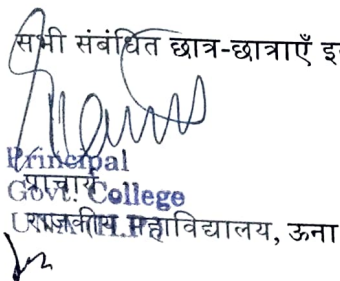 सभी संबंधित छात्र-छात्राएँ इ
Principal
प्राचार्य
Govt. College
राजकीय महाविद्यालय, ऊना